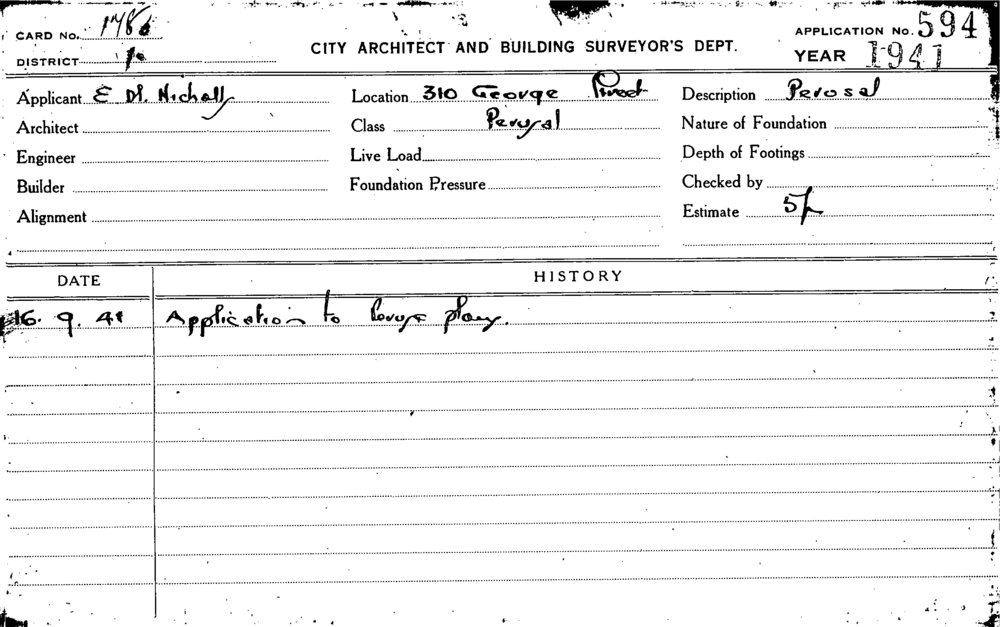 CARD No. 1786 APPLICATION No. 594
CITY ARCHITECT AND BUILDING SURVEYOR'S DEPT.
DISTRICT YEAR 1941
Applicant E M. Nicholls Location 310 George Street Description Perusal
Architect Class Perusal Nature of Foundation
Engineer Live Load Depth of Footings
Builder Foundation Pressure Checked by
Alignment Estimate 5/-
DATE HISTORY
16. 9. 41 Application to peruse plans.